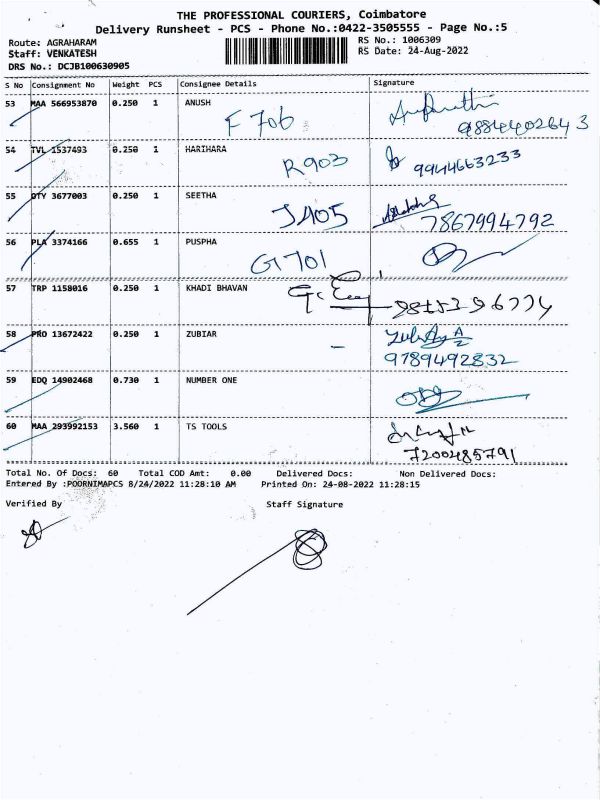 THE PROFESSIONAL COURIERS, Coimbatore
Delivery Runsheet - PCS - Phone No.:0422-3505555 - Page No.:5
Route: AGRAHARAM
RS No.: 1006309
Staff: VENKATESH
RS Date: 24-Aug-2022
DRS No.: DCJB100630905
S No Consignment No Weight PCS Consignee Details Signature
53 MAA 566953870 0.250 1 ANUSH
F 706 9884402643
54 TVL 1537493 0.250 1 HARIHARA
R903 9944663233
55 OTY 3677003 0.250 1 SEETHA
J405 7867994792
56 PLA 3374166 0.655 1 PUSPHA
G701
57 TRP 1158016 0.250 1 KHADI BHAVAN
58 PRO 13672422 0.250 1 ZUBIAR
9789492832
59 EDQ 14902468 0.730 1 NUMBER ONE
60 MAA 293992153 3.560 1 TS TOOLS
7200485791
Total No. Of Docs: 60 Total COD Amt: 0.00 Delivered Docs: Non Delivered Docs:
Entered By :POORNIMAPCS 8/24/2022 11:28:10 AM Printed On: 24-08-2022 11:28:15
Verified By Staff Signature